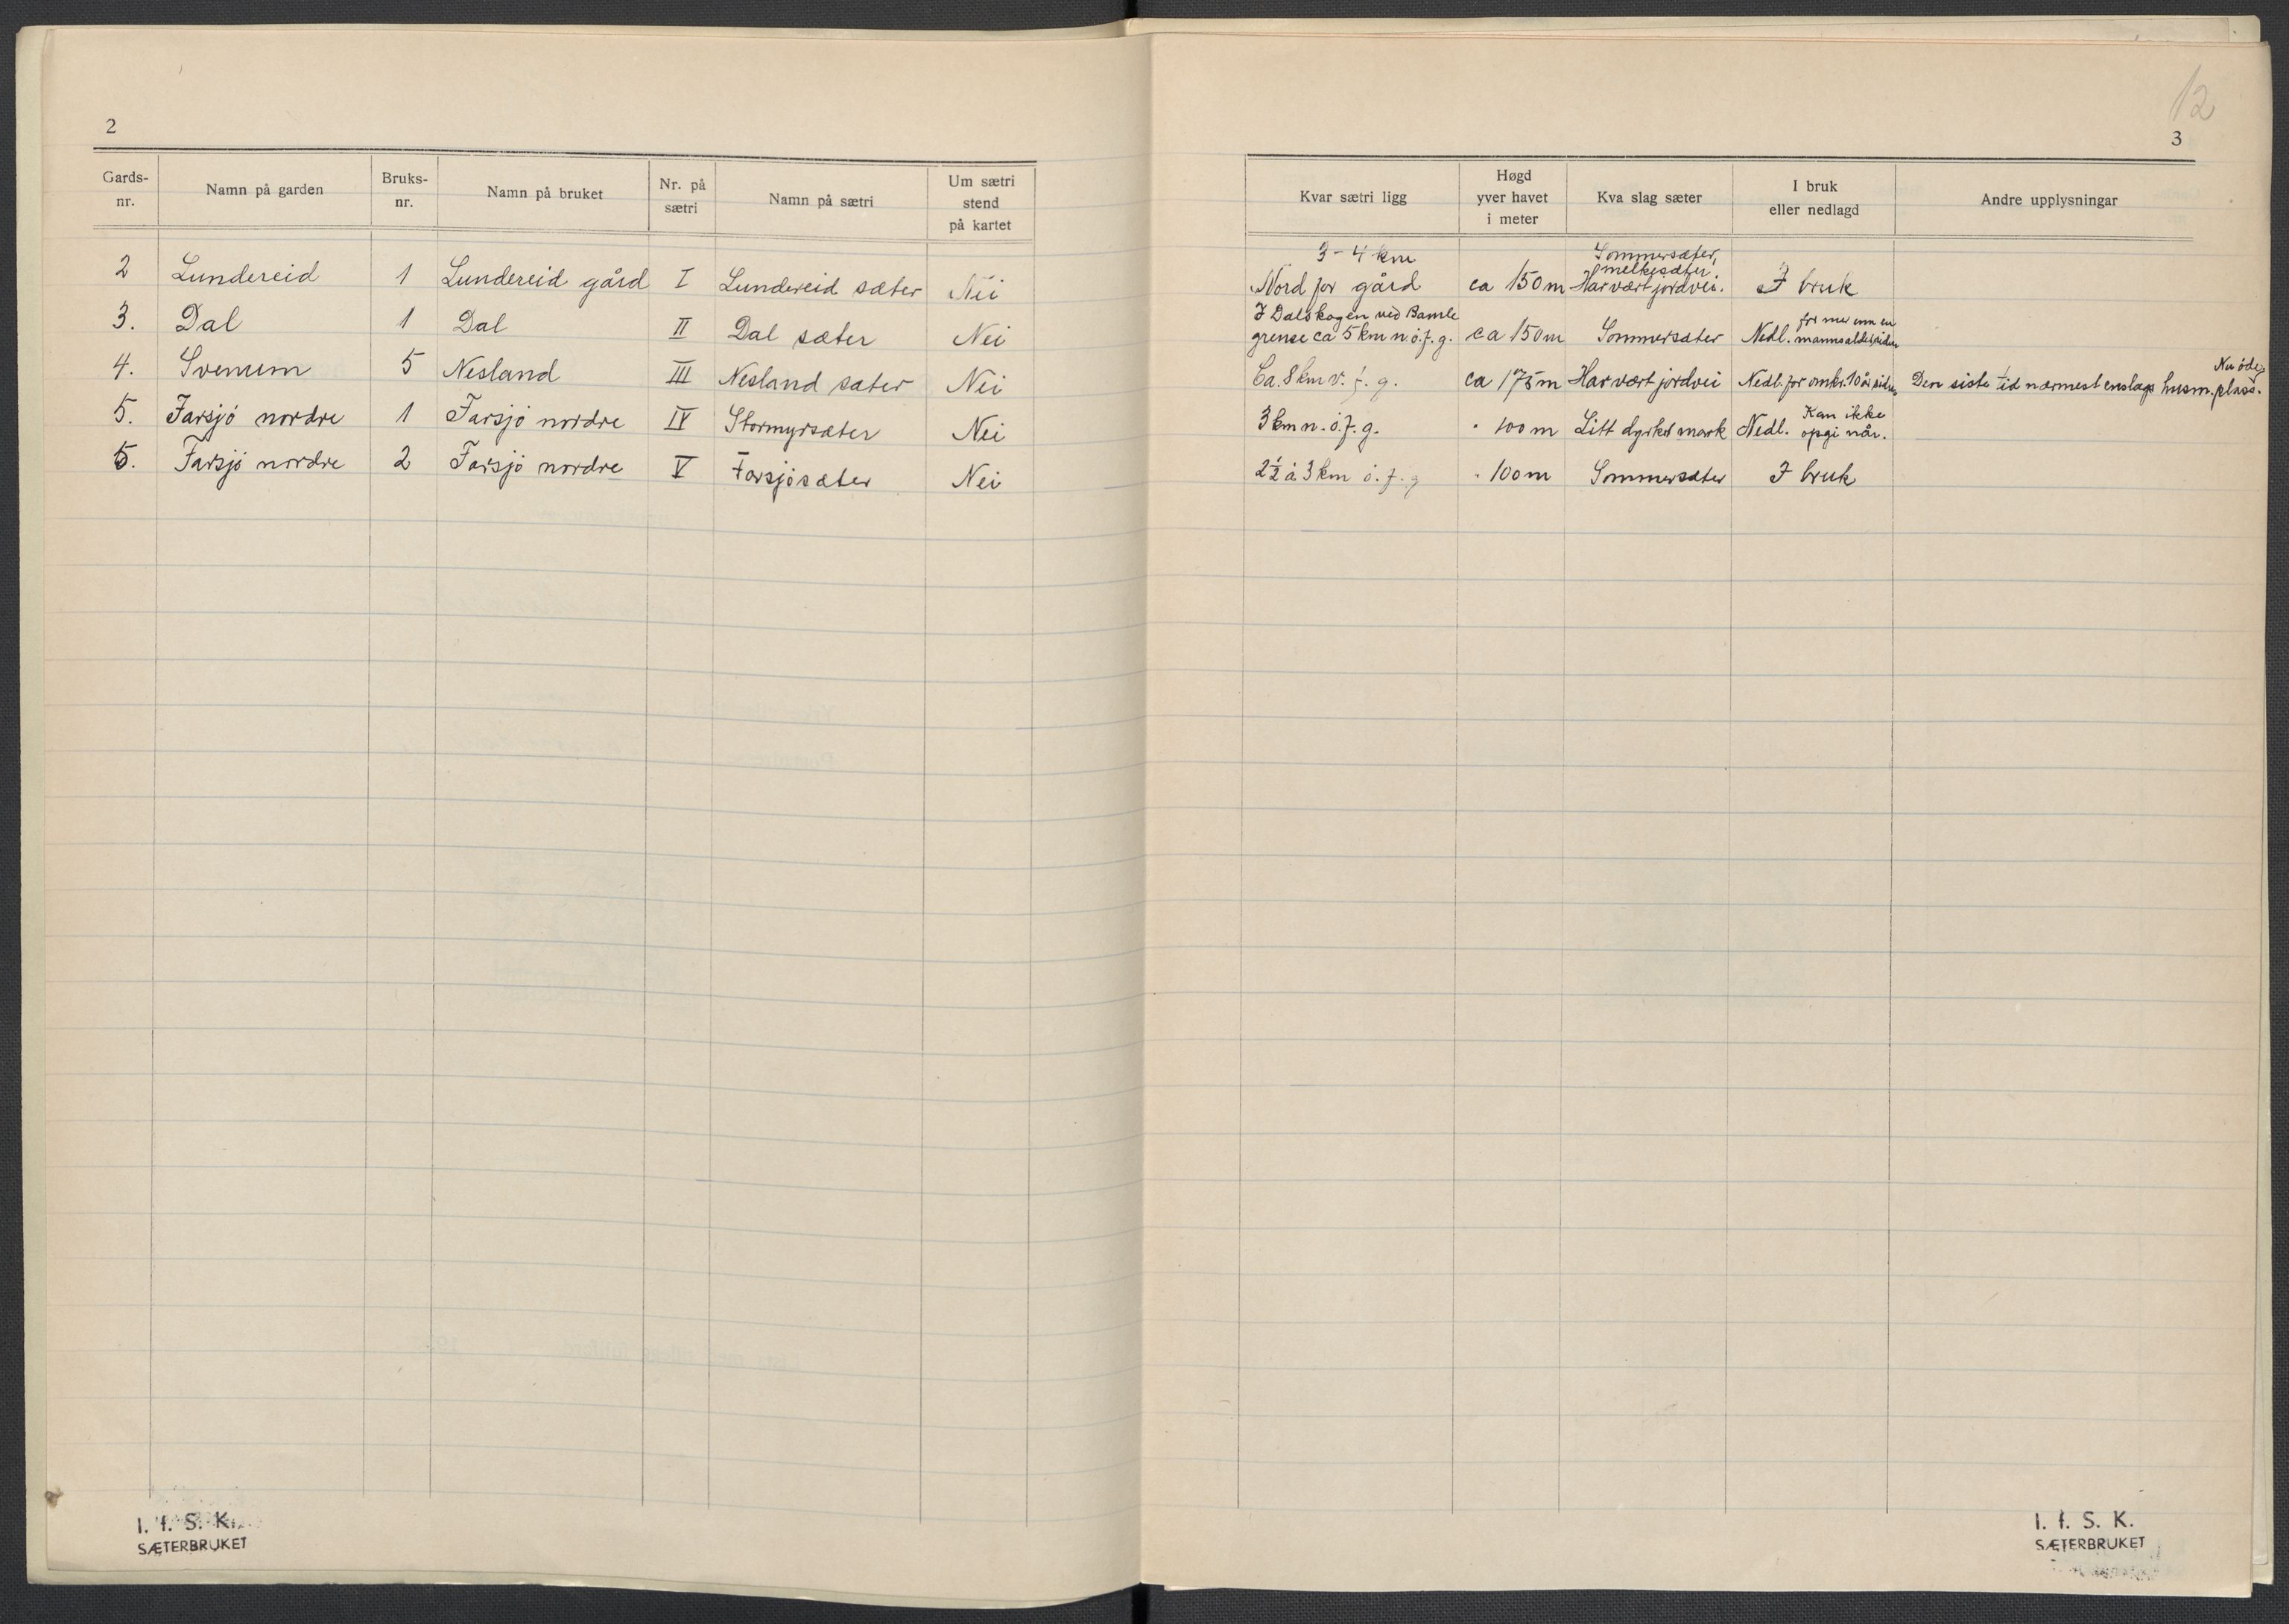 2
Gards-nr. Namn på garden Bruks-nr. Namn på bruket Nr. på sætri Namn på sætri Um sætri stend på kartet
2 Lundereid 1 Lundereid gård I Lundereid sæter Nei
3. Dal 1 Dal II Dal sæter Nei
4. Svenum 5 Nesland III Nesland sæter Nei
5. Farsjø nordre 1 Farsjø nordre IV Stormyrsæter Nei
5. Farsjø nordre 2 Farsjø nordre V Farsjøsæter Nei
I. f. S. K.
SÆTERBRUKET
12
3
Kvar sætri ligg Høgd yver havet i meter Kva slag sæter I bruk eller nedlagd Andre upplysningar
3-4 km Sommersæter, melkesæter.
Nord for gård ca 150 m Har vært jordvei. I bruk
I Dalskogen ved Bamle for mer enn en
grense ca 5 km n.ø.f.g. ca 150 m Sommersæter Nedl. mannsalder siden
Nu øde,
Ca. 8 km v. f. g. ca 175 m Har vært jordvei Nedl. for omkr. 10 år siden Den siste tid nærmest enslags husm.plass.
Kan ikke
3 km n. ø. f. g. " 100 m Litt dyrket mark Nedl. opgi når.
2½ à 3 km ø. f. g " 100 m Sommersæter I bruk
I. f. S. K.
SÆTERBRUKET